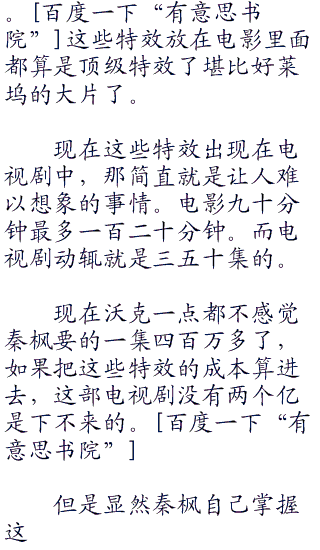 。[百度一下“有意思书
院”]这些特效放在电影里面
都算是顶级特效了堪比好莱
坞的大片了。
现在这些特效出现在电
视剧中，那简直就是让人难
以想象的事情。电影九十分
钟最多一百二十分钟。而电
视剧动辄就是三五十集的。
现在沃克一点都不感觉
秦枫要的一集四百万多了，
如果把这些特效的成本算进
去，这部电视剧没有两个亿
是下不来的。[百度一下“有
意思书院”]
但是显然秦枫自己掌握
这